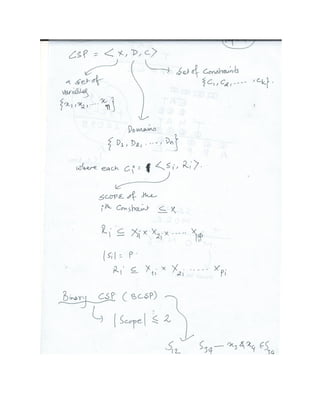 CSP = < X, D, C>
a set of variables {x1, x2, ... xn}
set of constraints {C1, C2, ..... Ck}.
Domains
{D1, D2, ....., Dn}
where each Ci = <Si, Ri>.
SCOPE of the
ith constraint ⊆ X
Ri ⊆ X1i x X2i x .....
|Si| = P.
Ri ⊆ X1i x X2i ..... Xpi
Binary CSP (BCSP)
|Scope| ≤ 2
S12 S34 — x3 & x4 ∈ S34